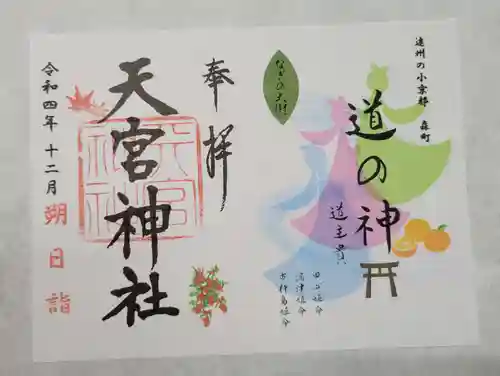 遠州の小京都 森町
道の神
道主貴
田心姫命
湍津姫命
市杵島姫命
奉拝
天宮神社
令和四年十二月朔日詣